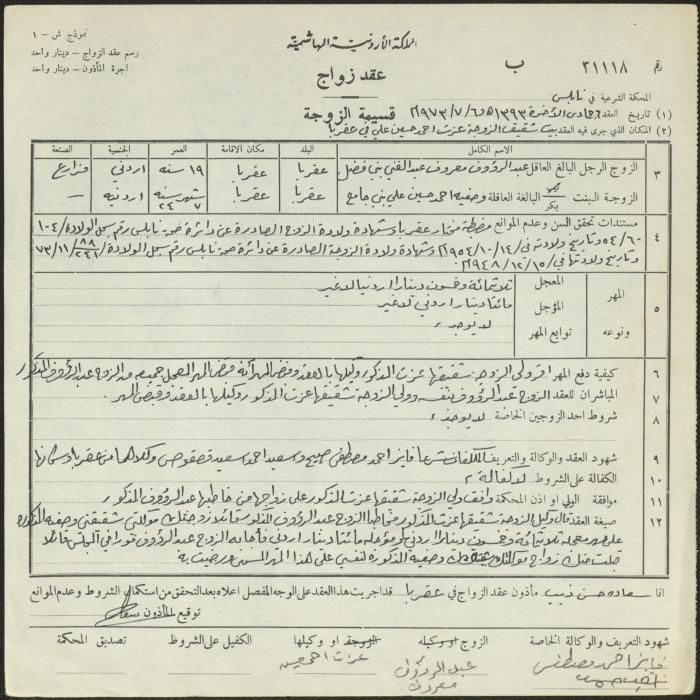 نموذج ش - ١
المملكة الأردنية الهاشمية
رسم عقد الزواج - دينار واحد
اجرة المأذون - دينار واحد
رقم ٣١١١٨ ب
عقد زواج
المحكمة الشرعية في نابلس
قسيمة الزوجة
(١) تاريخ العقد ٦ جمادى الآخرة ١٣٩٣هـ و ٦/٧/٩٧٣م
(٢) المكان الذي جرى فيه العقد بيت شقيق الزوجة عزت احمد حسين علي في عقربا
الاسم الكامل البلد مكان الاقامة العمر الجنسية الصنعة
٣ الزوج الرجل البالغ العاقل عبد الرؤوف معروف عبد الغني بني فضل عقربا عقربا ١٩ سنه اردني مزارع
الزوجة البنت بكر البالغة العاقلة وصفيه احمد حسين علي بني جامع عقربا عقربا ٧ شهر ٢٤ سنه اردنيه —
٤ مستندات تحقق السن وعدم الموانع مضبطة مختار عقربا وشهادة ولادة الزوج الصادرة عن دائرة صحة نابلس رقم سجل الولادة ١٠٤/
٥٤/٦٠ وتاريخ ولادته في ١٤/١٠/٩٥٤م وشهادة ولادة الزوجة الصادرة عن دائرة صحة نابلس رقم سجل الولادة
وتاريخ ولادتها في ١٥/١٢/٩٤٨م
٥ المهر ونوعه
المعجل ثلاثمائة وخمسون دينارا اردنيا لا غير
المؤجل مائتا دينار اردني لا غير
توابع المهر لا يوجد
٦ كيفية دفع المهر اقر ولي الزوجة شقيقها عزت المذكور وكيلها بالعقد وقبض المهر أنه قبض المهر المعجل جميعه من الزوج عبد الرؤوف المذكور
٧ المباشران للعقد الزوج عبد الرؤوف بنفسه وولي الزوجة شقيقها عزت المذكور وكيلها بالعقد وقبض المهر
٨ شروط احد الزوجين الخاصة لا يوجد
٩ شهود العقد والوكالة والتعريف المكلفان شرعا فايز احمد مصطفى صبيح وسعيد احمد سعيد وكلاهما من عقربا وسكانها
١٠ الكفالة على الشروط لا كفالة
١١ موافقة الولي او اذن المحكمة وافق ولي الزوجة شقيقها عزت المذكور على زواجها من خاطبها عبد الرؤوف المذكور
١٢ صيغة العقد قال وكيل الزوجة شقيقها عزت المذكور مخاطبا الزوج عبد الرؤوف المذكور قائلا زوجتك موكلتي شقيقتي وصفيه المذكوره
على مهر معجله ثلاثمائة وخمسون دينارا اردني ومؤجله مائتا دينار اردني فأجابه الزوج عبد الرؤوف فورا في المجلس قائلا
قبلت منك زواج موكلتك شقيقتك وصفية المذكورة لنفسي على هذا المهر المسمى ورضيت به
انا سعاده حسن ذيب مأذون عقد الزواج في عقربا قد اجريت هذا العقد على الوجه المفصل اعلاه بعد التحقق من استكمال الشروط وعدم الموانع
توقيع المأذون
شهود التعريف والوكالة الخاصة الزوج او وكيله الزوجة او وكيلها الكفيل على الشروط تصديق المحكمة
فايز احمد مصطفى
عبد الرؤوف
معروف
عزات احمد حسين